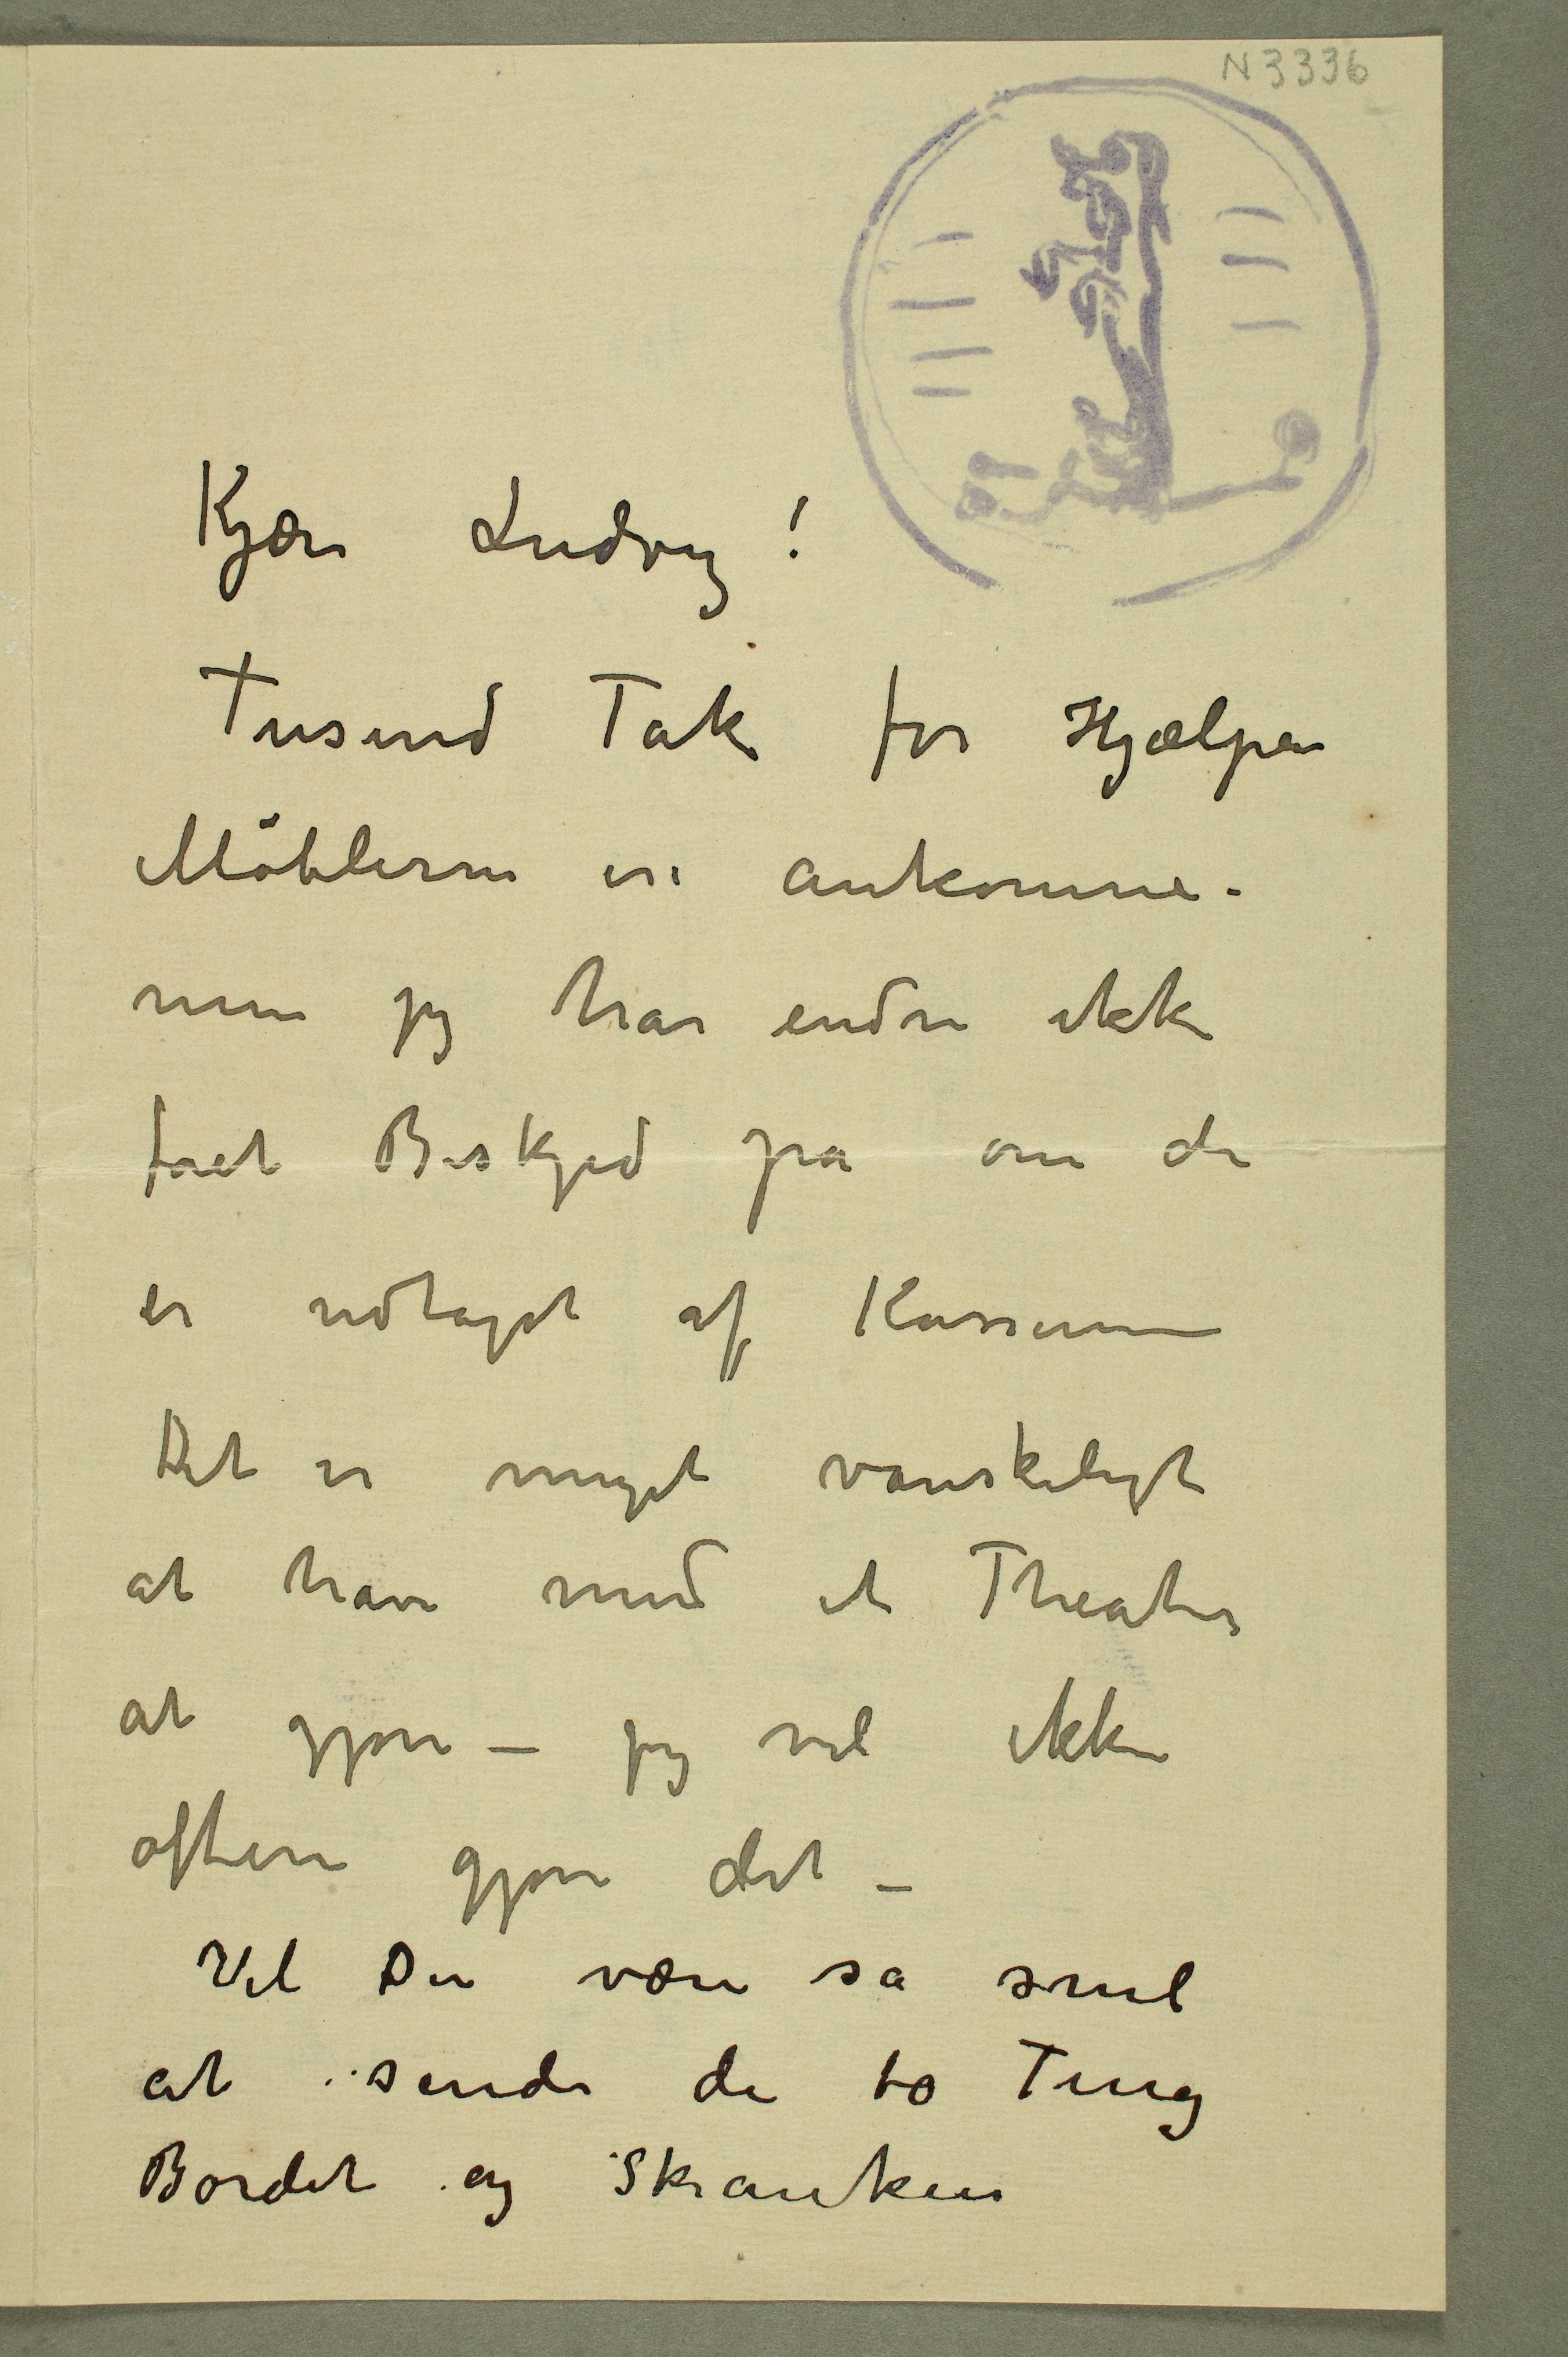 N 3336
Kjære Ludvig!
Tusend Tak for Hjælpen
Möblerne er ankomne.
men jeg har endnu ikke
fået Beskjed på om de
er udtaget af Kasserne
Det er meget vanskeligt
at have med et Theater
at gjøre – jeg vil ikke
oftere gjøre det –
Vil Du være så snil
at sende de to Ting
Bordet og Skranken